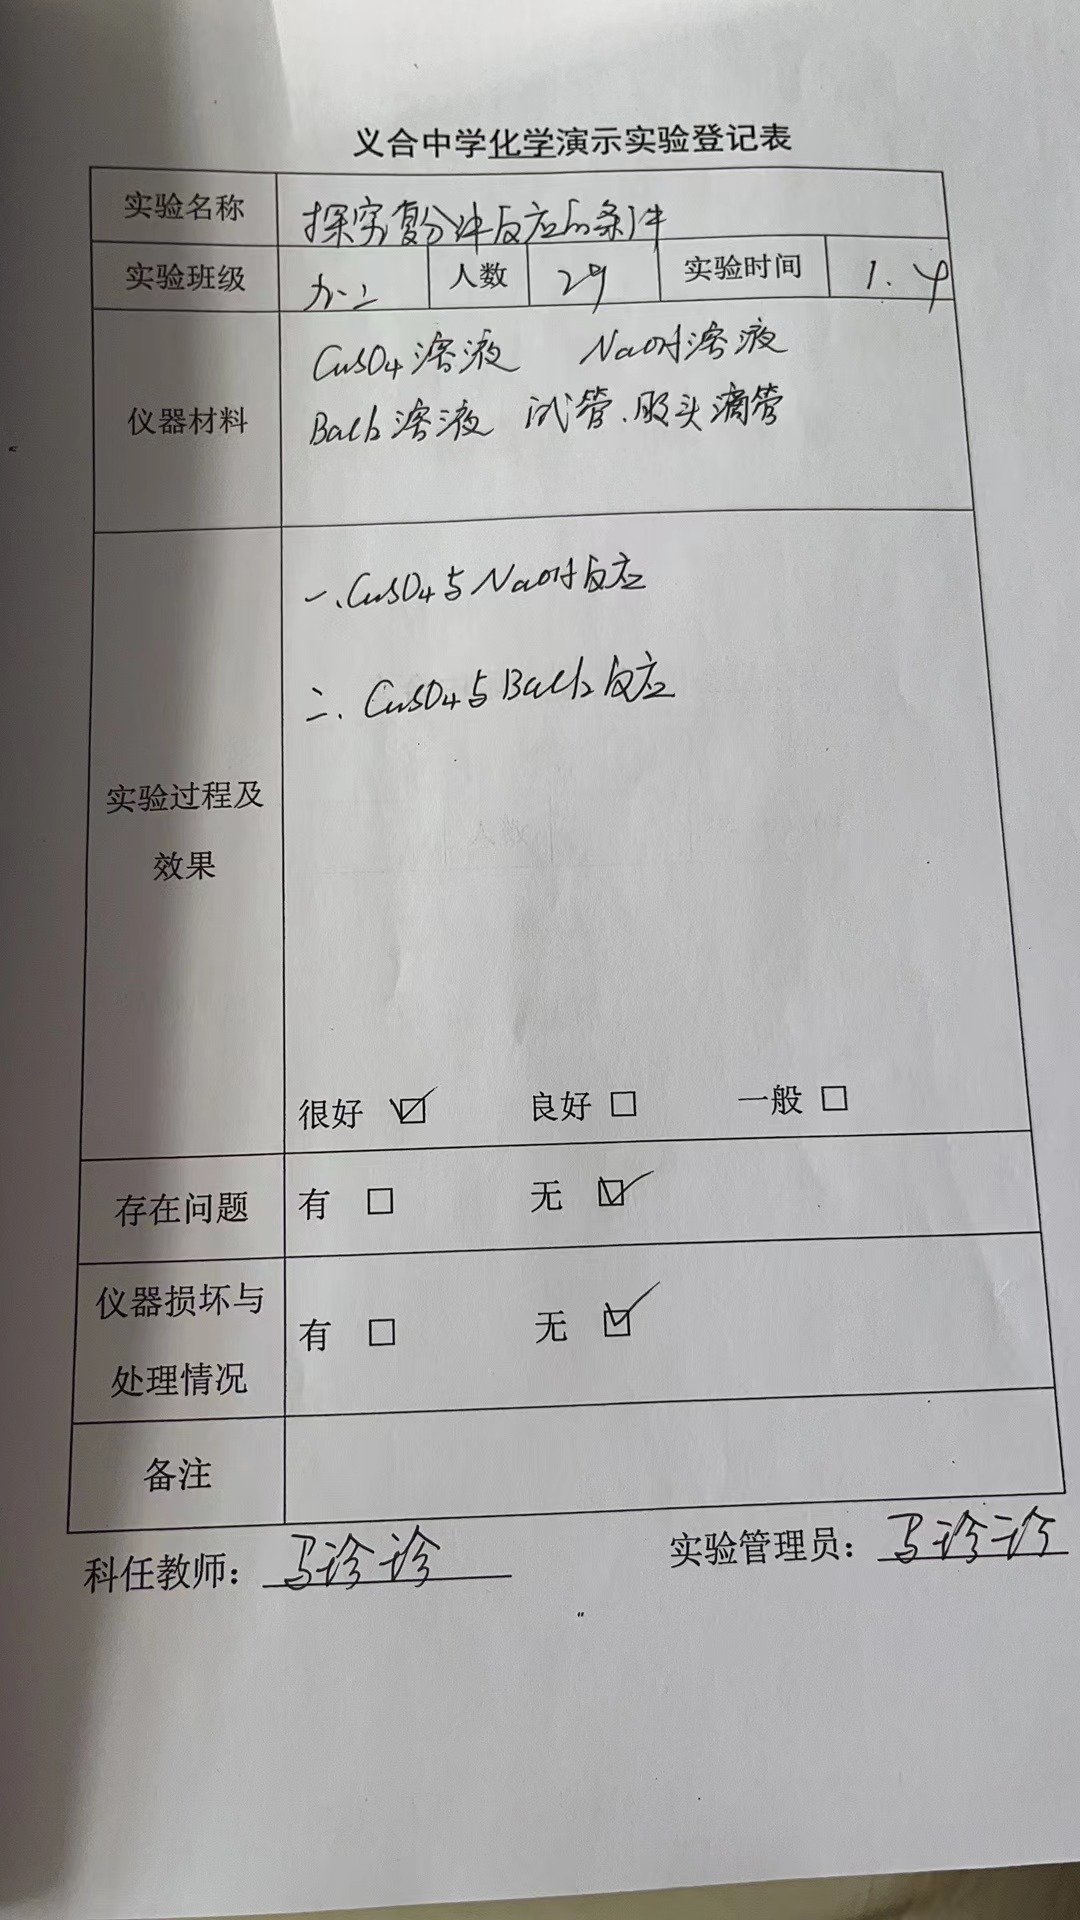 义合中学化学演示实验登记表
实验名称 探究复分解反应的条件
实验班级 九.二 人数 29 实验时间 1.4
仪器材料
CuSO4溶液 NaOH溶液
BaCl2溶液 试管、胶头滴管
一、CuSO4与NaOH反应
二、CuSO4与BaCl2反应
实验过程及
效果
很好 ☑ 良好 □ 一般 □
存在问题 有 □ 无 ☑
仪器损坏与
处理情况
有 □ 无 ☑
备注
科任教师：马诊诊 实验管理员：马诊诊